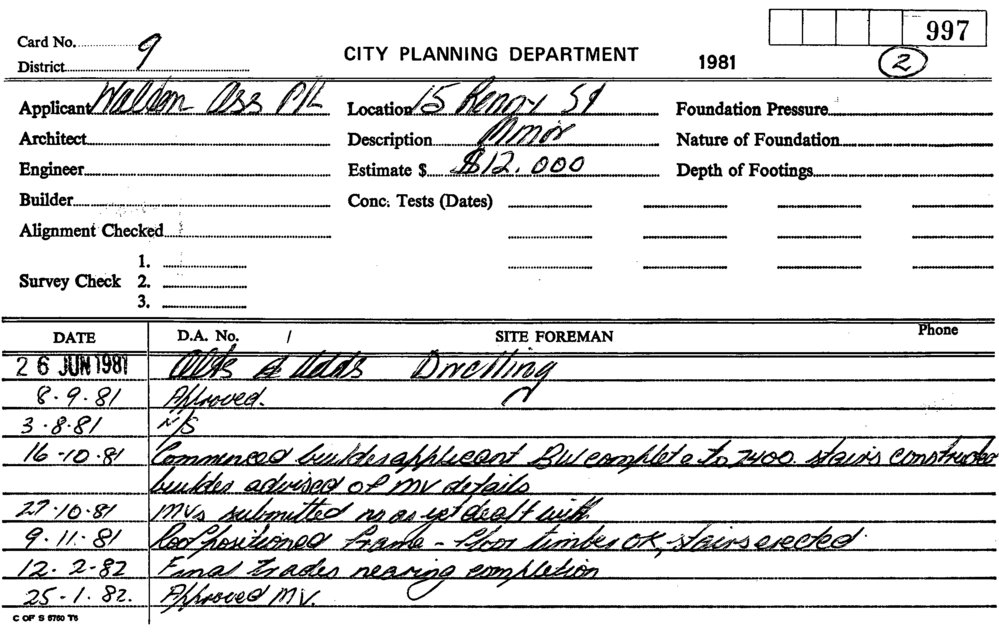 997
Card No. 9
District
CITY PLANNING DEPARTMENT
1981
2
Applicant Waldon Ass P/L
Location 15 Renny St
Foundation Pressure
Architect
Description Minor
Nature of Foundation
Engineer
Estimate $ $12.000
Depth of Footings
Builder
Conc. Tests (Dates)
Alignment Checked
Survey Check
1.
2.
3.
DATE D.A. No. / SITE FOREMAN Phone
26 JUN 1981 Alts & Adds Dwelling
8.9.81 Approved.
3.8.81 N/S
16-10.81 Commenced builder applicant BW complete to 2400. stairs constructed
builder advised of MV details
27.10.81 MVs submitted no as yet dealt with
9.11.81 Roof positioned frame - floor timber OK, stairs erected
12.2-82 Final trades nearing completion
25-1.82. Approved MV.
C OF S 5750 T5